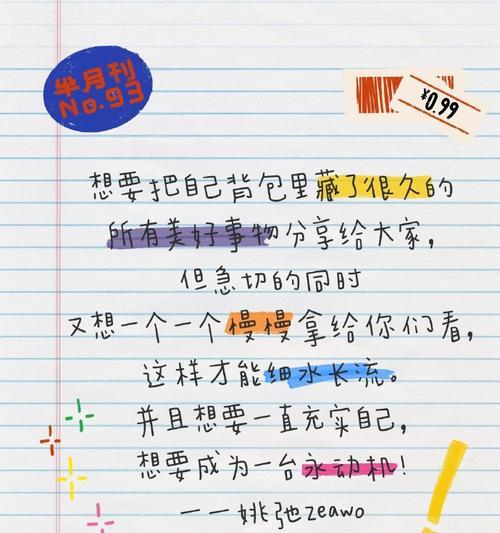 半月刊
No.93
¥0.99
想要把自己背包里藏了很久的
所有美好事物分享给大家，
但急切的同时
又想一个一个慢慢拿给你们看，
这样才能细水长流。
并且想要一直充实自己，
想要成为一台永动机！
——姚弛zeawo